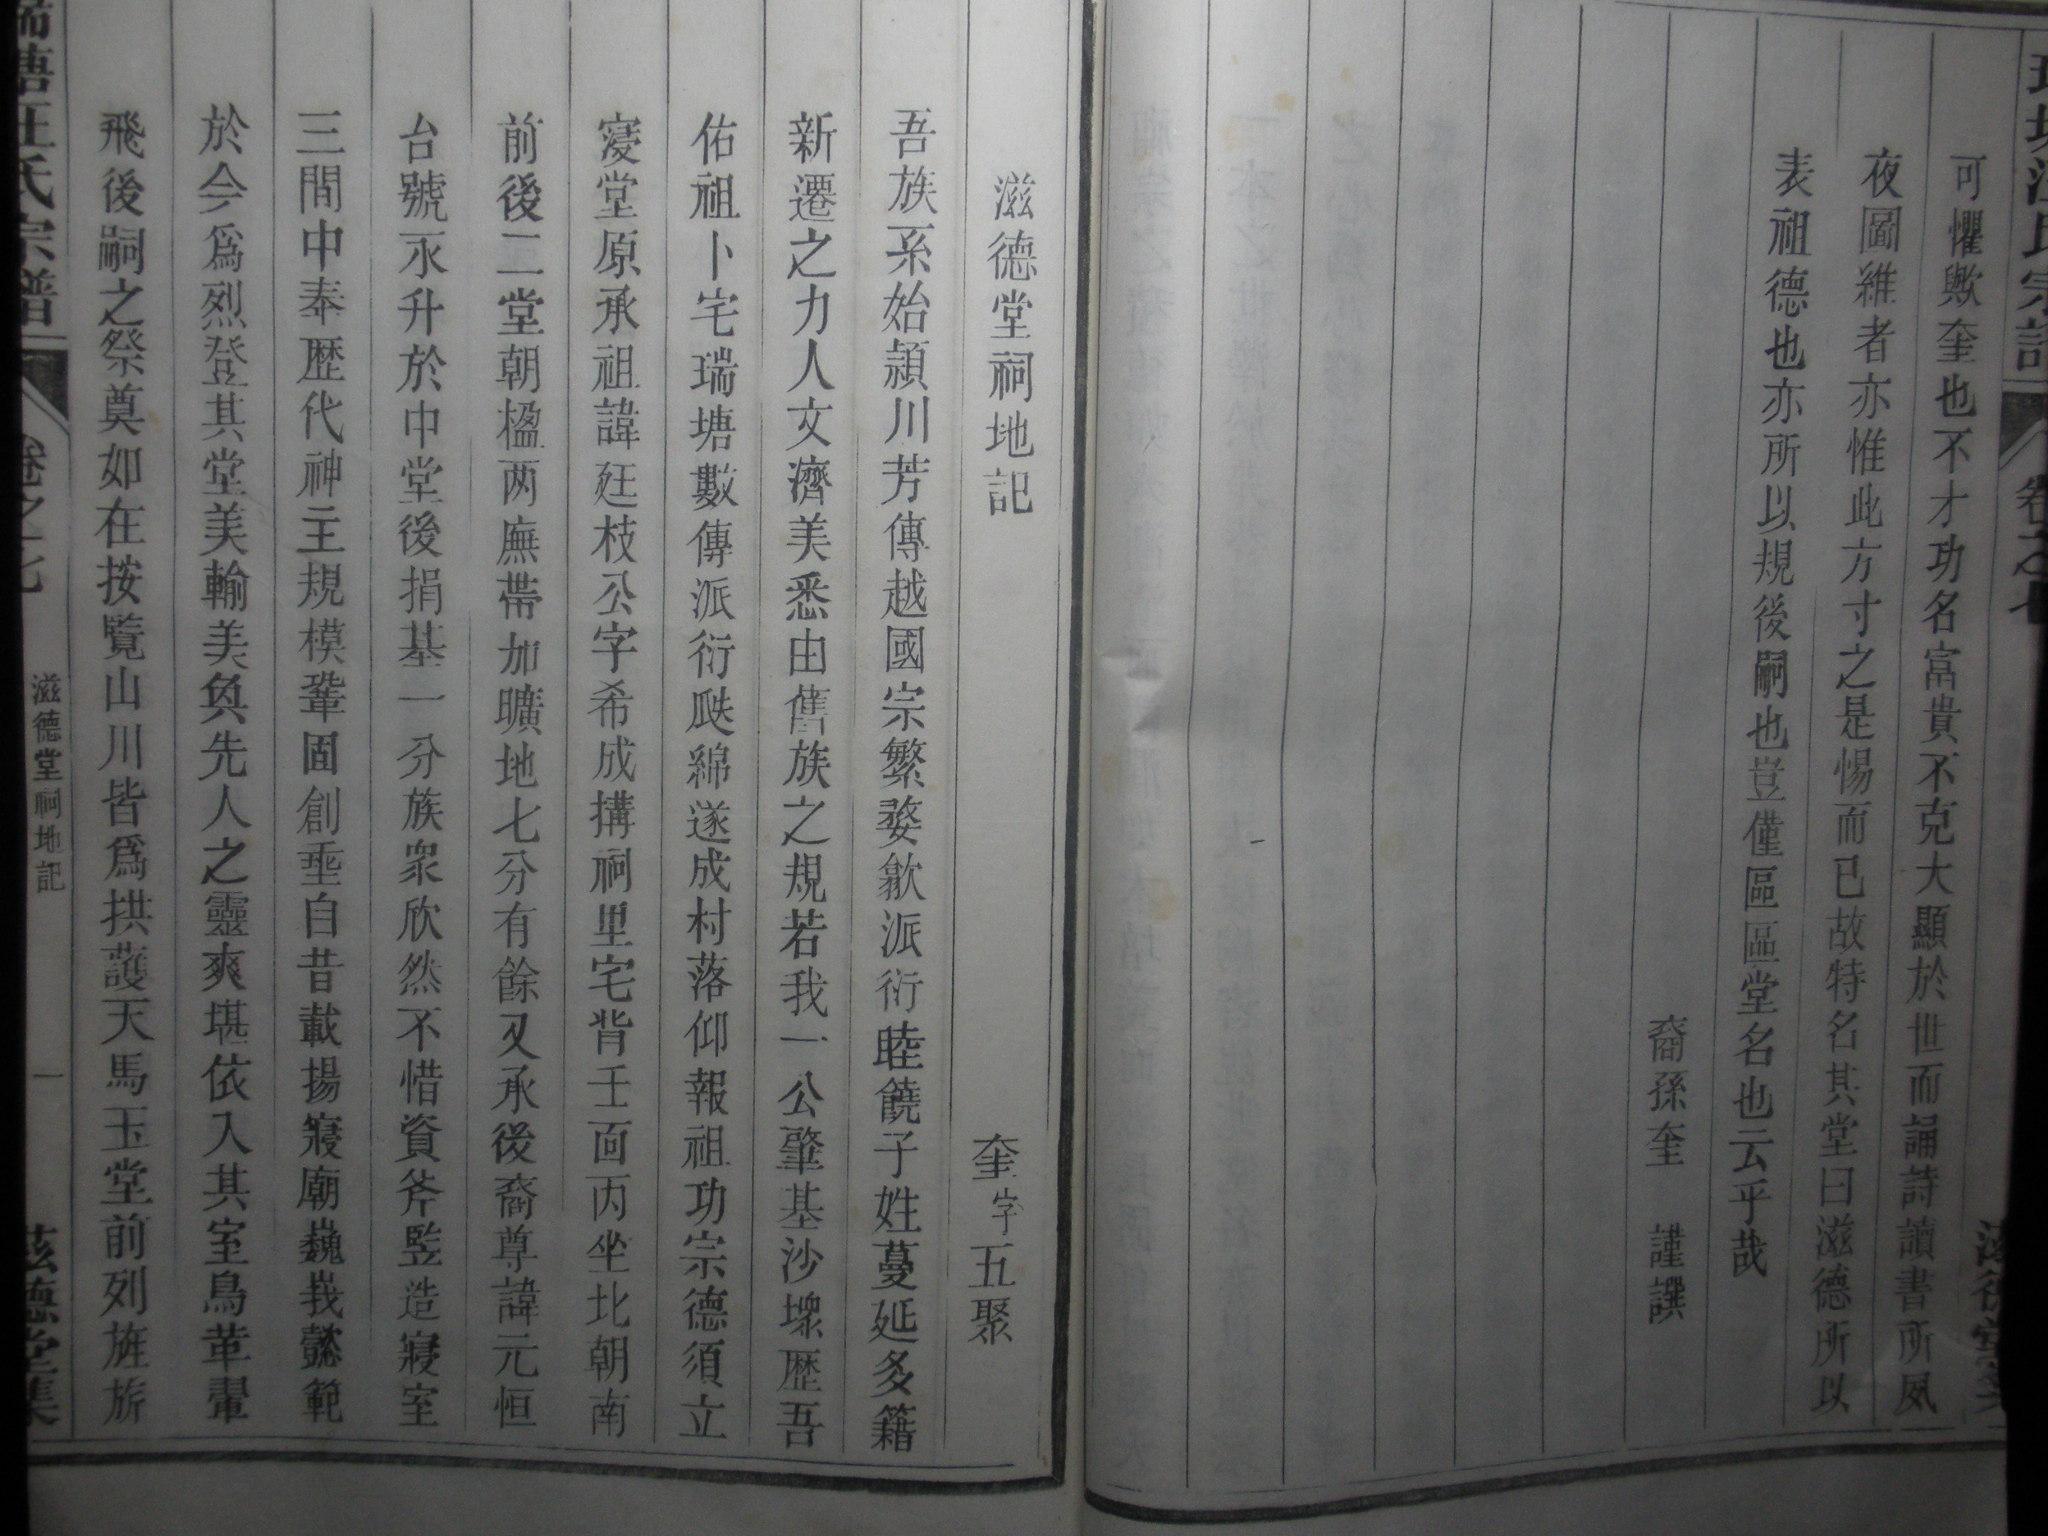 卷之七
可懼歟奎也不才功名富貴不克大顯於世而誦詩讀書所夙
夜圖維者亦惟此方寸之是惕而已故特名其堂曰滋德所以
表祖德也亦所以規後嗣也豈僅區區堂名也云乎哉
裔孫奎 謹譔
滋德堂祠地記 奎字五聚
吾族系始潁川芳傳越國宗繁婺歙派衍睦饒子姓蔓延多籍
新遷之力人文濟美悉由舊族之規若我一公肇基沙堨歷吾
佑祖卜宅瑞塘數傳派衍瓞綿遂成村落仰報祖功宗德須立
寢堂原承祖諱廷枝公字希成搆祠里宅背壬面丙坐北朝南
前後二堂朝楹两廡帶加曠地七分有餘又承後裔尊諱元恒
台號永升於中堂後捐基一分族衆欣然不惜資斧監造寢室
三間中奉歷代神主規模鞏固創垂自昔載揚寢廟巍峩懿範
於今爲烈登其堂美輪美奐先人之靈爽堪依入其室鳥革翬
飛後嗣之祭奠如在按覽山川皆爲拱護天馬玉堂前列旌旂
瑞塘汪氏宗譜
卷之七
滋德堂祠地記
一
滋德堂集